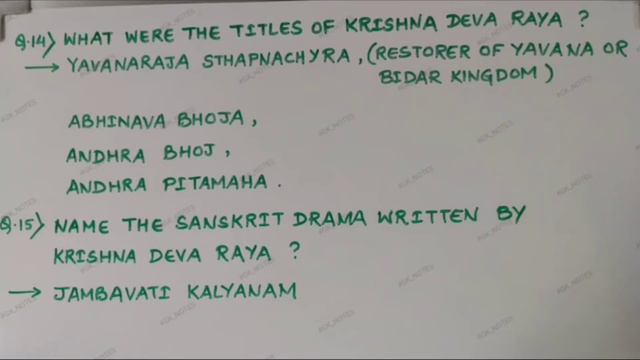 Q.14) WHAT WERE THE TITLES OF KRISHNA DEVA RAYA ?
→ YAVANARAJA STHAPNACHYRA, (RESTORER OF YAVANA OR
BIDAR KINGDOM)
ABHINAVA BHOJA,
ANDHRA BHOJ,
ANDHRA PITAMAHA.
Q.15) NAME THE SANSKRIT DRAMA WRITTEN BY
KRISHNA DEVA RAYA ?
→ JAMBAVATI KALYANAM